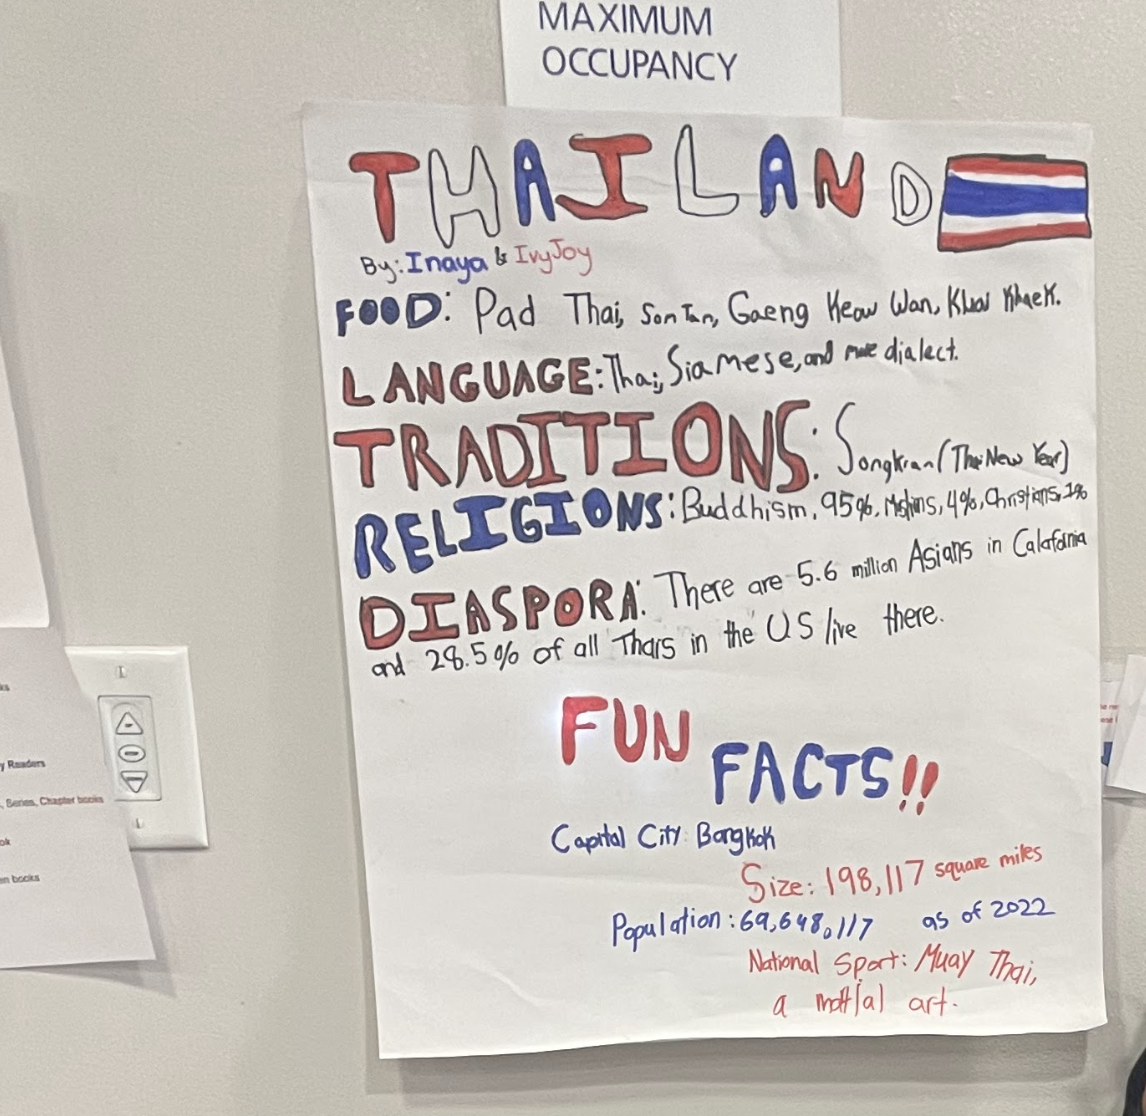 MAXIMUM
OCCUPANCY
THAILAND
By: Inaya & IvyJoy
FOOD: Pad Thai, Som Tam, Gaeng Keow Wan, Khai Khaek.
LANGUAGE: Thai, Siamese, and more dialect.
TRADITIONS: Songkran (Thai New Year)
RELIGIONS: Buddhism, 95%, Muslims, 4%, Christians, 1%
DIASPORA: There are 5.6 million Asians in Calafornia
and 28.5% of all Thais in the US live there.
FUN
FACTS!!
Capital City: Bangkok
Size: 198,117 square miles
Population: 69,648,117 as of 2022
National Sport: Muay Thai,
a martial art.
y Readers
, Series, Chapter books
ok
en books